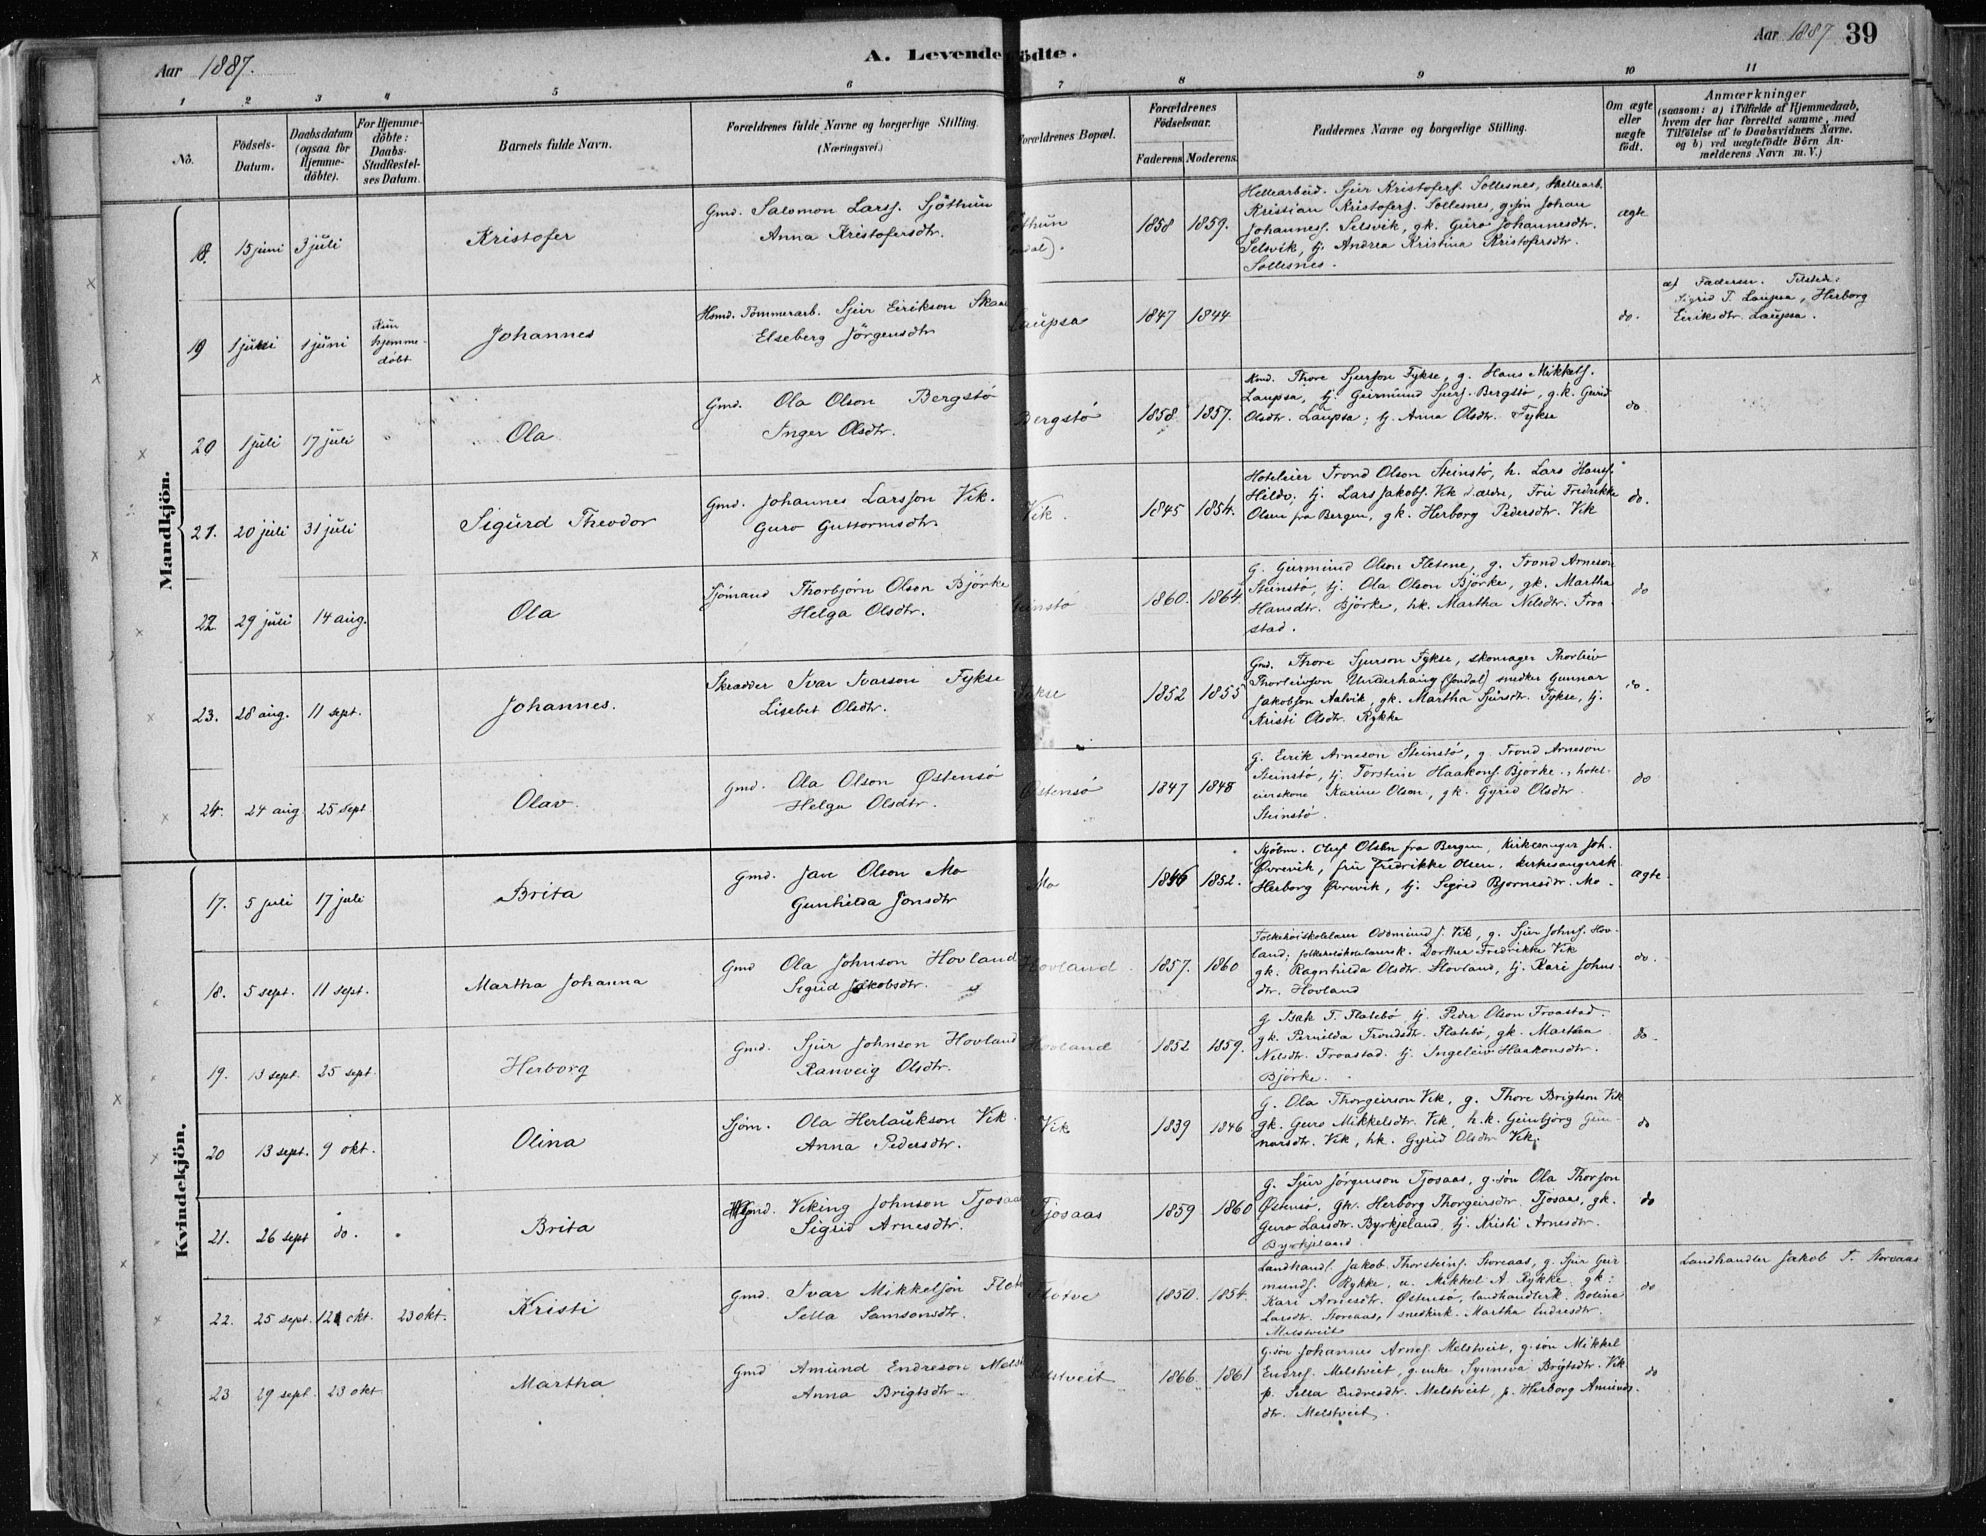 Aar 1887.
A. Levendefödte.
Aar 1887 39
1 2 3 4 5 6 7 8 9 10 11
No.
Födsels-Datum.
Daabsdatum (ogsaa for Hjemme-döbte).
For Hjemme-döbte: Daabs-Stadfæstel-ses Datum.
Barnets fulde Navn.
Forældrenes fulde Navne og borgerlige Stilling.
(Næringsvei.)
Forældrenes Bopæl.
Forældrenes Födselsaar.
Faderens. Moderens.
Faddernes Navne og borgerlige Stilling.
Om ægte eller uægte födt.
Anmærkninger
(saasom: a) i Tilfælde af Hjemmedaab,
hvem der har forrettet samme, med
Tilföielse af to Daabsvidners Navne.
og b) ved uægtefödte Börn An-
melderens Navn m. V.)
Mandkjön.
18. 15 juni 3 juli Kristofer
Gmd. Salomon Larss. Sjöthun
Anna Kristofersdtr.
1858 1859.
Hellearbeid. Sjur Kristofers. Sollesnes, Hellearb.
Kristian Kristofers. Sollesnes, g.søn Johan
Johannes. Selsvik, gk. Guro Johannesdtr.
Selsvik, tj. Andrea Kristina Kristofersdtr.
Sollesnes.
ægte
19 1 juni 1 juni Kun hjemme-döbt Johannes
Hsmd. Tömmerarb. Sjur Eirikson Skaa
Elseberg Jörgensdtr
Laupsa 1847 1844 do.
af Faderen. Tilstede:
Sigrid T. Laupsa, Herborg
Eiriksdtr. Laupsa.
20 1 juli 17 juli Ola
Gmd. Ola Olson Bergstö
Inger Olsdtr.
Bergstö 1858. 1857.
Kmd. Thore Sjurson Fykse, g. Hans Mikkels.
Laupsa, tj. Geirmund Sjurs. Bergstö, g.k. Gurid
Olsdtr. Laupsa; tj. Anna Olsdtr. Fykse
do
21. 20 juli 31 juli Sigurd Theodor
Gmd. Johannes Larsson Vik.
Guro Guttormsdtr.
Vik. 1845 1854.
Hoteleier Trond Olson Steinstö, h. Lars Hans.
Hildo. tj. Lars Jakobs. Vik d. ældre, Fru Fredrikke
Olsen fra Bergen, gk. Herborg Pedersdtr. Vik
do.
22. 29 juli 14 aug. Ola
Sjömand Thorbjörn Olson Björke
Helga Olsdtr.
Steinstö 1860. 1864.
G. Geirmund Olson Flesene, g. Trond Arneson
Steinstö, tj. Ola Olson Björke, gk. Martha
Hansdtr. Björke, hk. Martha Nilsdtr. Troa-
stad.
do
23. 28 aug. 11 sept. Johannes.
Skrædder Ivar Ivarson Fykse
Lisebet Olsdtr.
Fykse 1852 1855
Gmd. Thore Sjurson Fykse, skomager Thorleiv
Thorleivson Underhaug (Jondal) snedker Gunnar
Jakobson Aalvik, gk. Martha Sjursdtr. Fykse, tj.
Kristi Olsdtr. Rykke
do.
24. 24 aug. 25 sept. Olav.
Gmd. Ola Olson Østensö
Helga Olsdtr.
Østensö 1847 1848
G. Eirik Arneson Steinstö, g. Trond Arneson
Steinstö, tj. Torstein Haakons. Björke., hotel-
eierskone Karine Olson, gk. Gyrid Olsdtr.
Steinstö.
do
Kvindekjön.
17. 5 juli 17 juli Brita
Gmd. Jan Olson Mo
Gunhilda Jonsdtr
Mo 1846 1852.
Kjöbm. Oluf Olsen fra Bergen, kirkesanger Joh.
Øvrevik, fru Fredrikke Olsen, kirkesangersk.
Herborg Øvrevik, tj. Sigrid Bjornesdtr. Mo.
ægte
18. 5 sept. 11 sept. Martha Johanna
Gmd Ola Johnson Hovland
Sigrid Jakobsdtr.
Hovland 1857. 1860
Folkehöiskolelærer Oddmund J. Vik, g. Sjur Johns. Hov-
land, folkehöiskolelærersk. Dorthea Fredrikke Vik
gk. Ragnhilda Olsdtr. Hovland, tj. Kari Johns-
dtr. Hovland
do.
19. 13 sept. 25 sept. Herborg
Gmd. Sjur Johnson Hovland
Ranveig Olsdtr.
Hovland 1852 1859.
g Isak T. Flatebö, tj. Peder Olson Troastad.
gk. Pernilda Trondsdtr. Flatebö, gk. Martha
Nilsdtr. Troastad. tj. Ingeleiv Haakonsdtr.
Björke.
do.
20 13 sept. 9 okt. Olina
Sjöm. Ola Herlaukson Vik.
Anna Pedersdtr.
Vik 1839 1846
G. Ola Thorgeirson Vik, g. Thore Brigtson Vik
gk. Guro Mikkelsdtr. Vik, h.k. Geirbjörg Gun
narsdtr. Vik, hk. Gyrid Olsdtr Vik.
do
21. 26 sept do. Brita
Gmd. Viking Johnson Tjosaas
Sigrid Arnesdtr.
Tjosaas 1859 1860
G. Sjur Jörgenson Tjosaas, g.søn Ola Thorson
Østensö, gk. Herborg Thorgeirsdtr. Tjosaas, gk.
Guro Larsdtr. Byrkjeland, tj. Kristi Arnesdtr.
Byrkjeland.
do
22. 25 sept. 12 okt. 23 okt. Kristi
Gmd. Ivar Mikkelson Flotve
Sella Samsonsdtr.
Flotve 1850. 1854.
Landhandl. Jakob Thorsteins. Storaas, g. Sjur Geir
munds. Rykke, u. Mikkel A. Rykke. gk:
Kari Arnesdtr. Østensö, landhandlerk. Bolina
Larsdtr. Storaas, snedkerk. Martha Endresdtr.
Melstveit
do
Landhandler Jakob T. Storaas
23 29 sept. 23 okt Martha
Gmd Amund Endreson Mels
Anna Brigtsdtr.
Melstveit 1866. 1861
G.søn Johannes Arnes. Melstveit, g.søn Mikkel
Endres. Melstveit, g.enke Synneva Brigtsdtr. Vik
p. Sella Endresdtr. Melstveit, p. Herborg Amunds-
dtr. Melstveit.
do